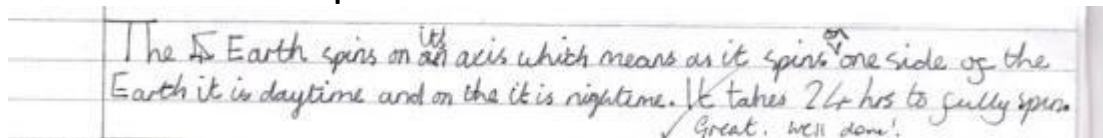 The Earth spins on its axis which means as it spins on one side of the
Earth it is daytime and on the it is nightime. It takes 24 hrs to fully spin.
Great. Well done!